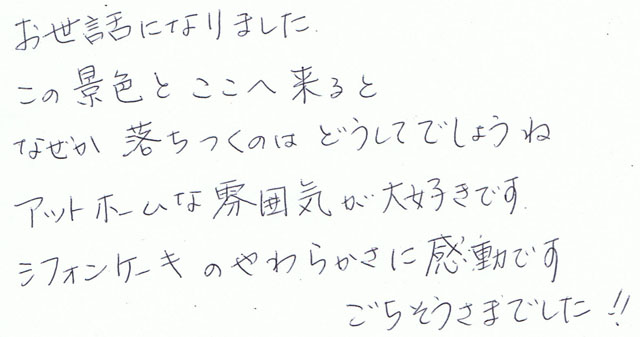 お世話になりました.
この景色と ここへ 来ると
なぜか 落ちつくのは どうしてでしょうね
アットホームな雰囲気が大好きです.
シフォンケーキ のやわらかさに感動です
ごちそうさまでした!!